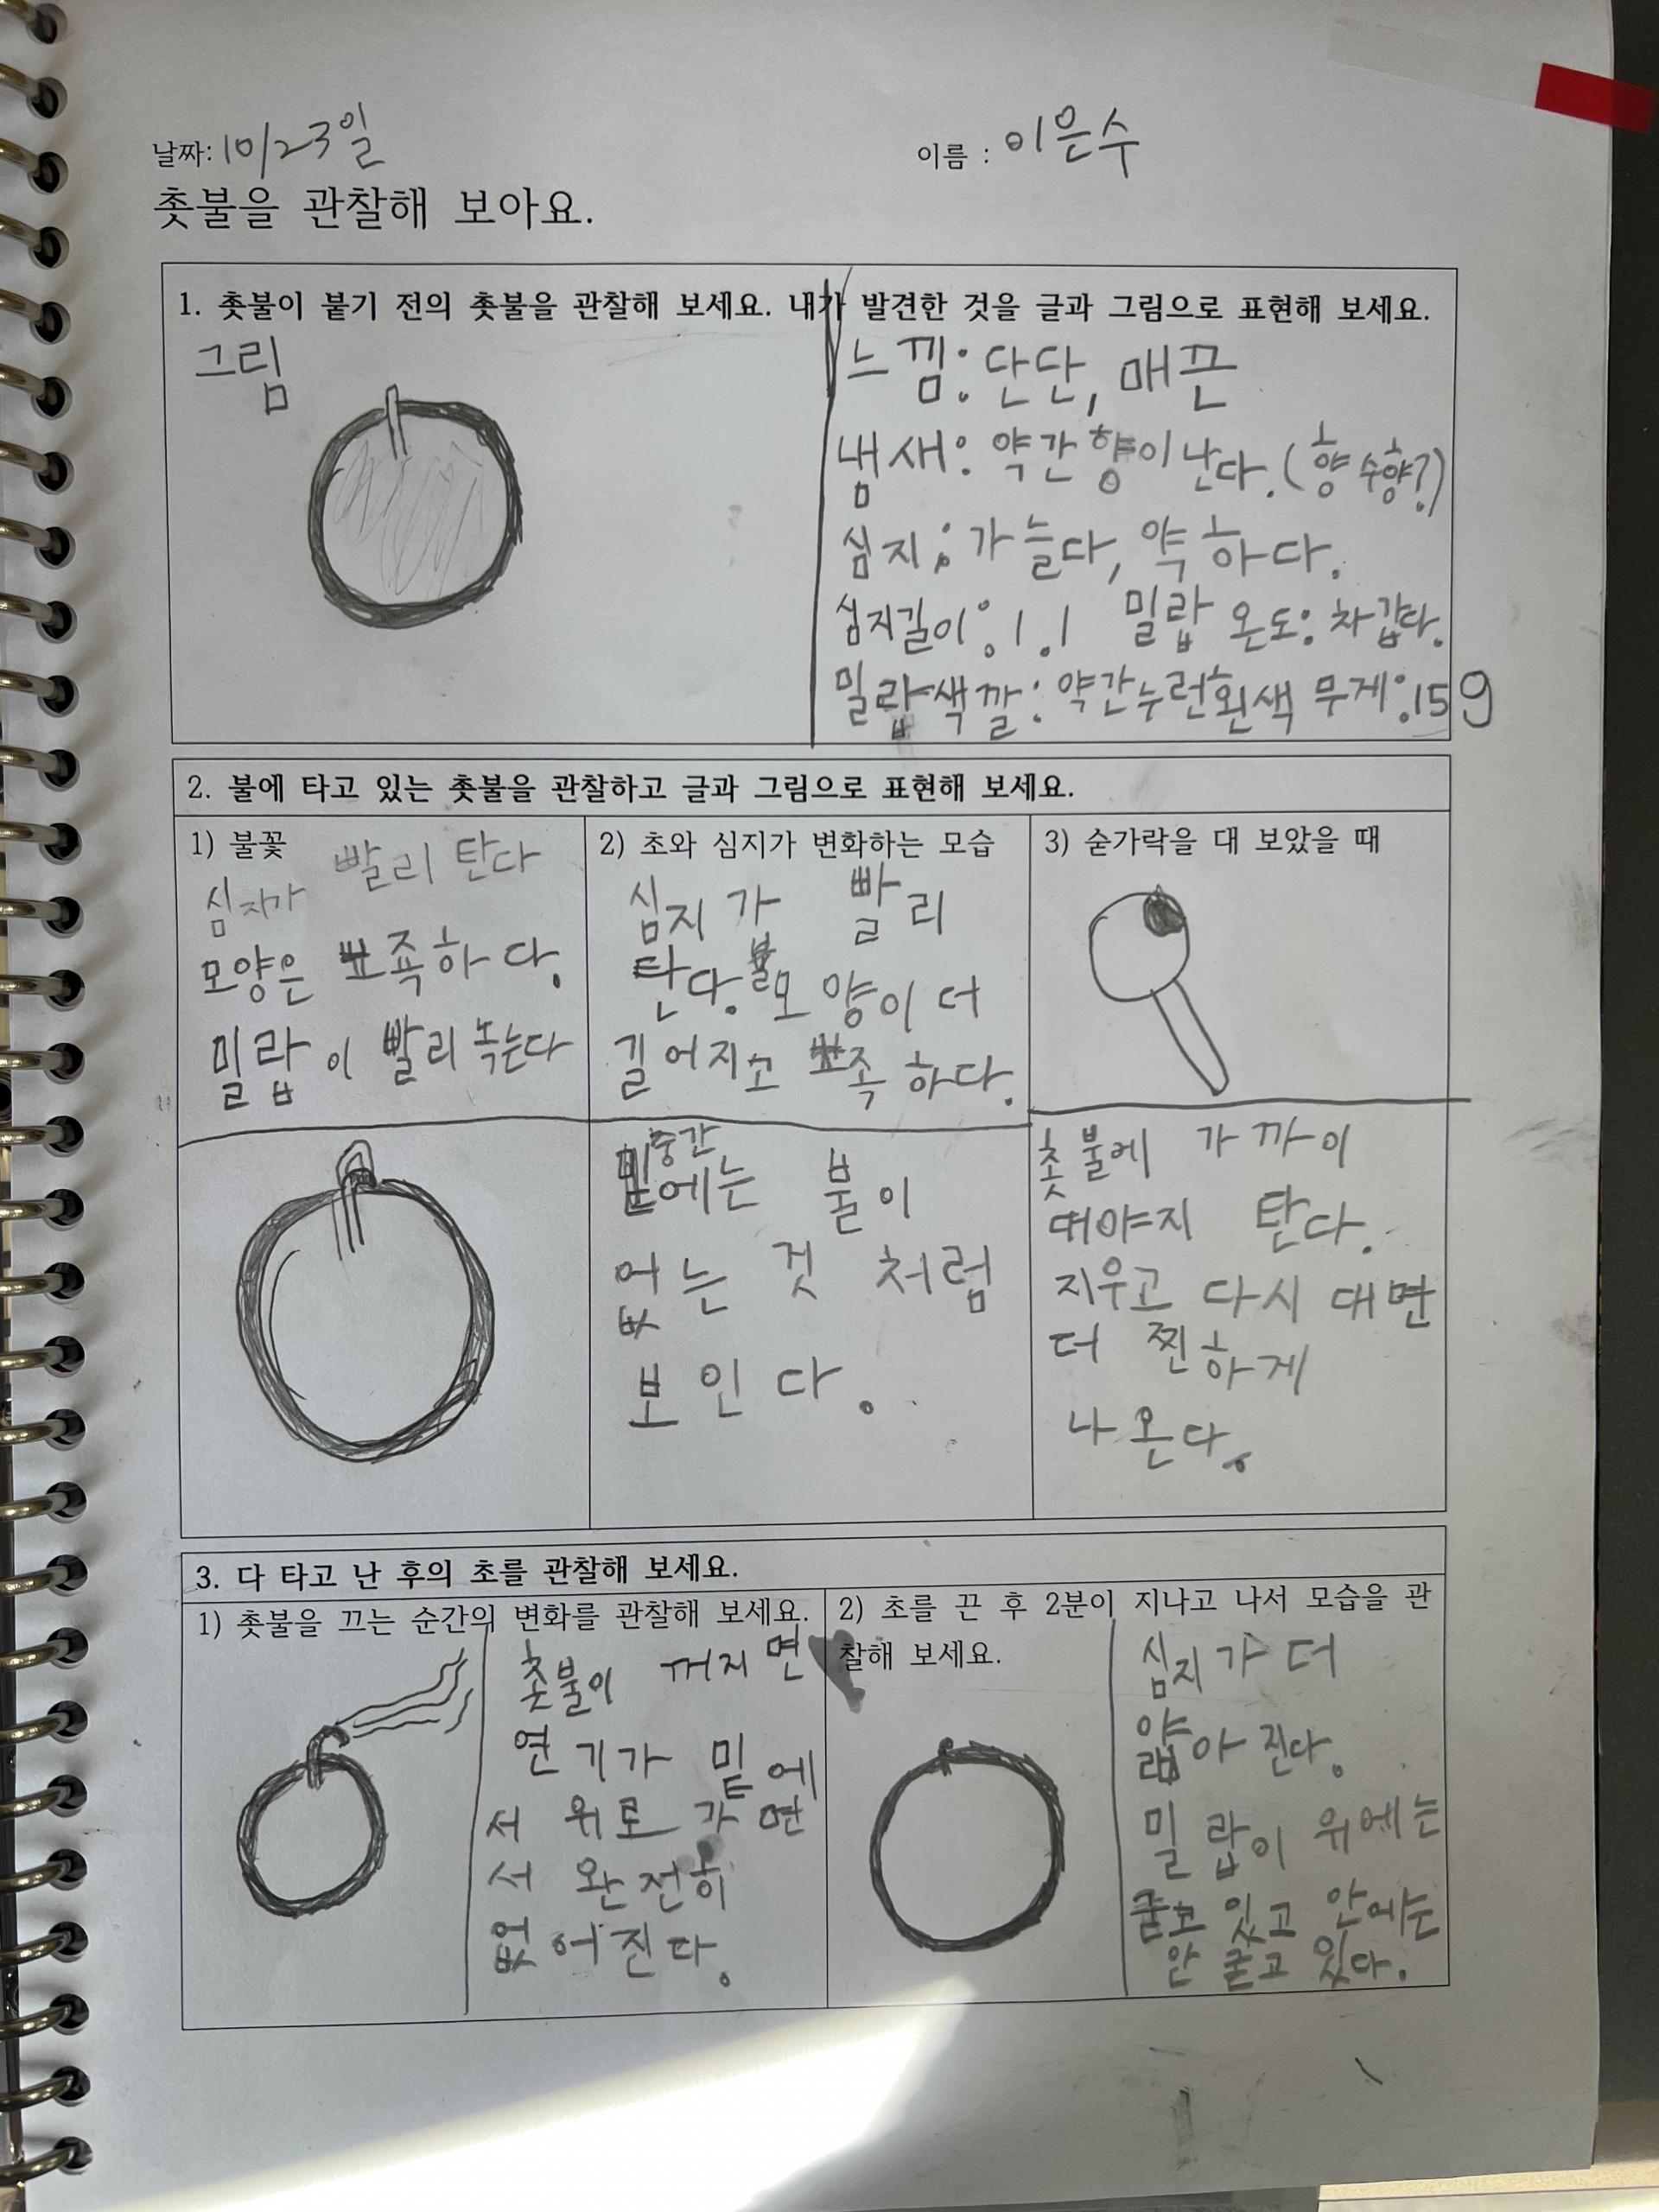 날짜: 10/23일
이름 : 이은수
촛불을 관찰해 보아요.
1. 촛불이 붙기 전의 촛불을 관찰해 보세요. 내가 발견한 것을 글과 그림으로 표현해 보세요.
그림
느낌: 단단, 매끈
냄새: 약간 향이 난다. (향수향?)
심지: 가늘다, 약하다.
심지길이: 1.1 밀랍 온도: 차갑다.
밀랍색깔: 약간누런흰색 무게: 15g
2. 불에 타고 있는 촛불을 관찰하고 글과 그림으로 표현해 보세요.
1) 불꽃
심지가 빨리 탄다
모양은 뾰족하다.
밀랍이 빨리 녹는다
2) 초와 심지가 변화하는 모습
심지가 빨리
탄다. 모양이 더
길어지고 뾰족하다.
중간
에는 불이
없는 것 처럼
보인다.
3) 숟가락을 대 보았을 때
촛불에 가까이
대야지 탄다.
지우고 다시 대면
더 찐하게
나온다.
3. 다 타고 난 후의 초를 관찰해 보세요.
1) 촛불을 끄는 순간의 변화를 관찰해 보세요.
촛불이 꺼지면
연기가 밑에
서 위로 가면
서 완전히
없어진다.
2) 초를 끈 후 2분이 지나고 나서 모습을 관
찰해 보세요.
심지가 더
얇아진다.
밀랍이 위에는
굳고 있고 안에는
안 굳고 있다.